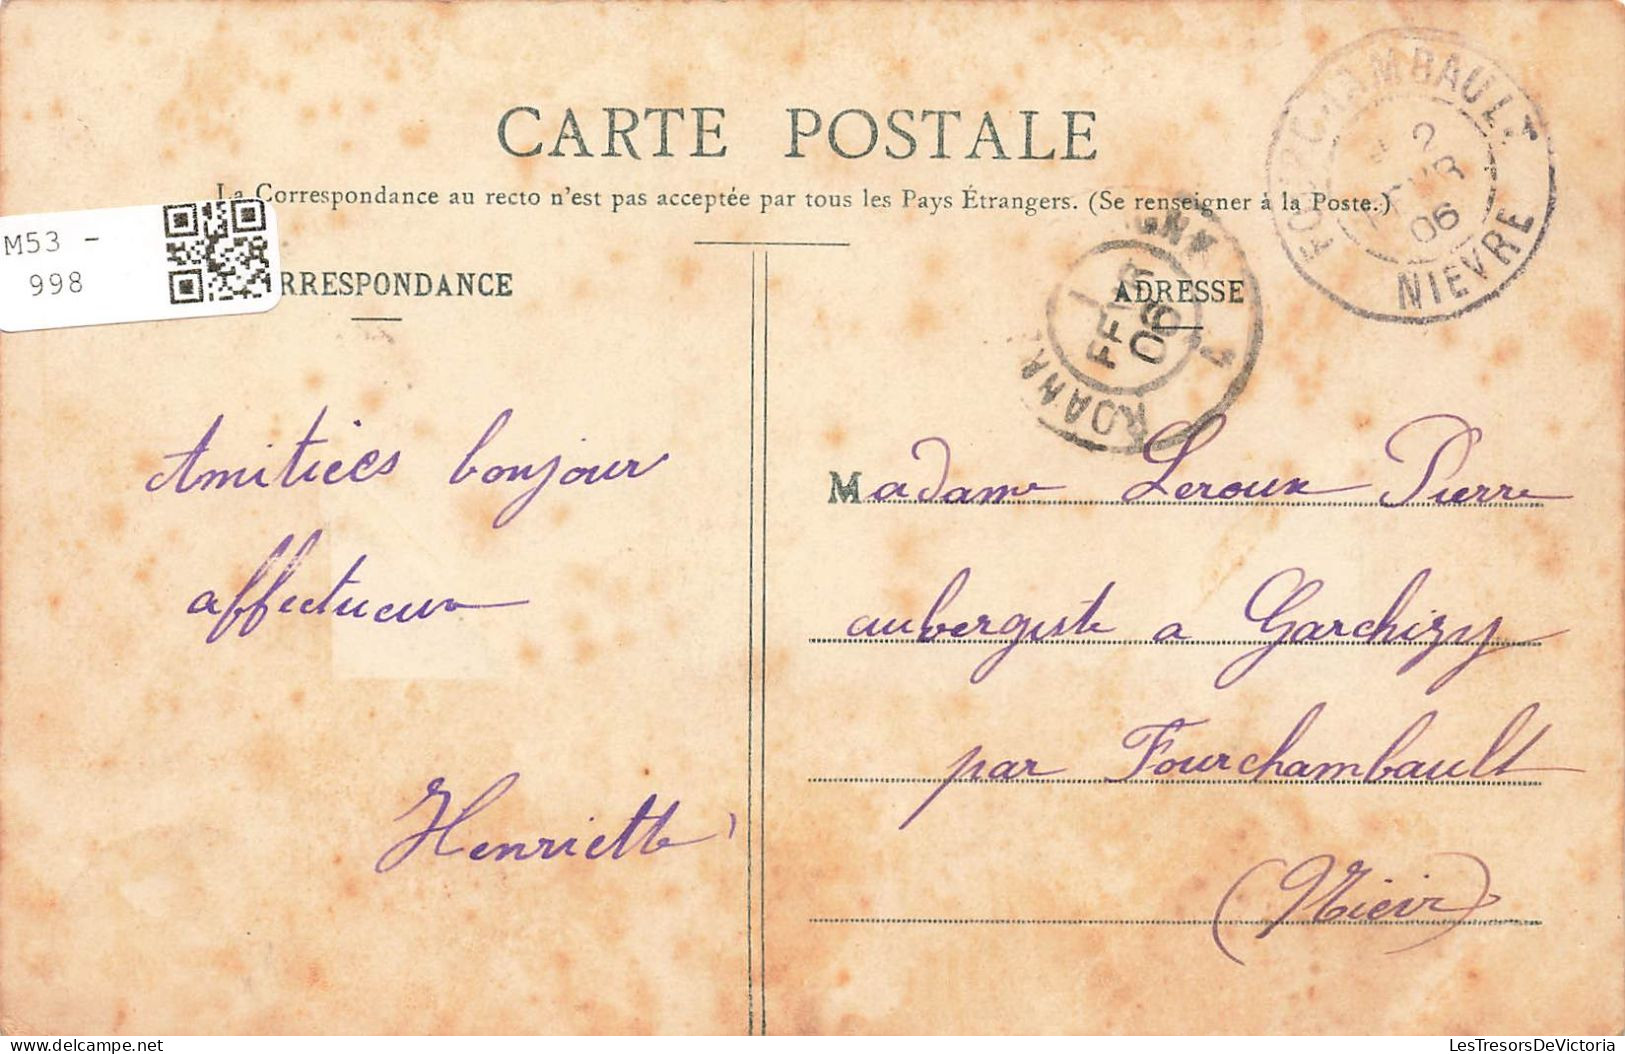 CARTE POSTALE
La Correspondance au recto n'est pas acceptée par tous les Pays Étrangers. (Se renseigner à la Poste.)
M53 -
998
RRESPONDANCE
ADRESSE
FOURCHAMBAULT
2
06
NIEVRE
1
FEVR
06
Amitiées bonjour
affectueux
Henriette
Madame Leroux Pierre
aubergiste a Garchizy
par Fourchambault
(Nièvr)
Les Tresors De Victoria
delcampe.net
LesTresorsDeVictoria